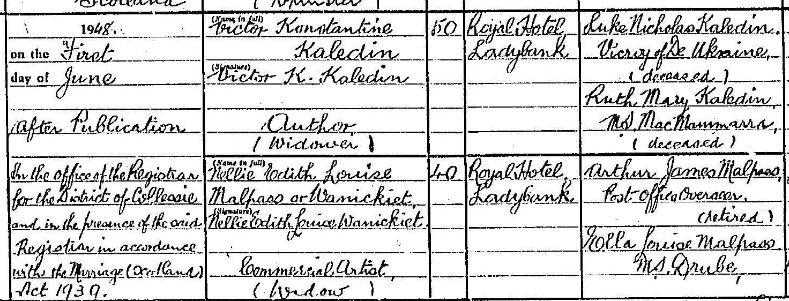 1948.
on the First
day of June
After Publication
In the office of the Registrar
for the District of Collessie
and in the presence of the said
Registrar in accordance
with the Marriage (Scotland)
Act 1939.
(Name in full)
Victor Konstantine
Kaledin
(Signature)
Victor K. Kaledin
Author
(Widower)
50
Royal Hotel,
Ladybank
Luke Nicholas Kaledin.
Viceroy of De Ukraine,
(deceased)
Ruth Mary Kaledin
MS. MacMammarra
(deceased)
(Name in full)
Nellie Edith Louise
Malpass or Wanickiet
(Signature)
Nellie Edith Louise Wanickiet.
Commercial Artist,
(Widow)
40
Royal Hotel,
Ladybank
Arthur James Malpass,
Post Office Overseer.
(retired)
Louise Malpass
MS. Drube,